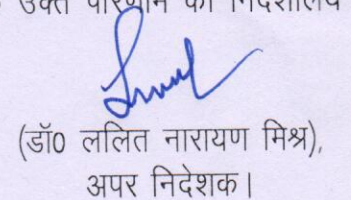 उक्त परिणाम को निदेशालय
(डॉ0 ललित नारायण मिश्र),
अपर निदेशक।